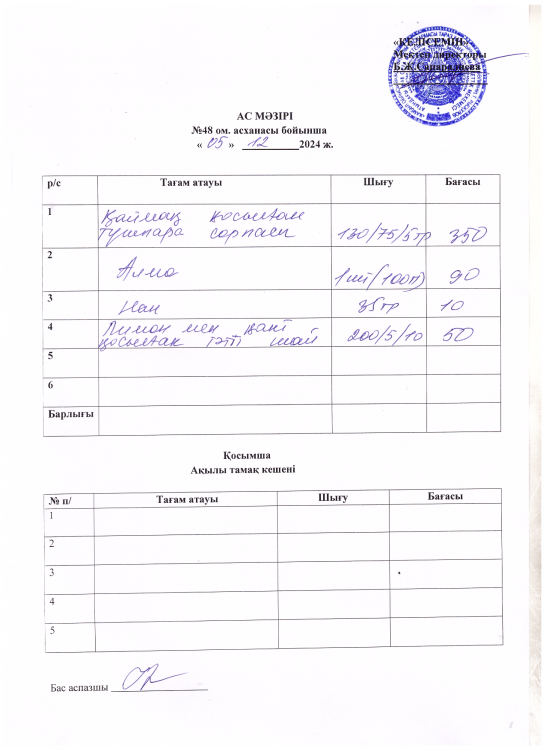 «КЕЛІСЕМІН»
Мектеп директоры
Б.Ж.Сапаралиева
АС МӘЗІРІ
№48 ом. асханасы бойынша
« 05 » 12 2024 ж.
р/с Тағам атауы Шығу Бағасы
1 Қаймақ қосылған
тушпара сорпасы 130/75/5гр 350
2 Алма 1шт(100гр) 90
3 Нан 35гр 10
4 Лимон мен қант
қосылған тәтті шай 200/5/10 50
5
6
Барлығы
Қосымша
Ақылы тамақ кешені
№ п/ Тағам атауы Шығу Бағасы
1
2
3
4
5
Бас аспазшы